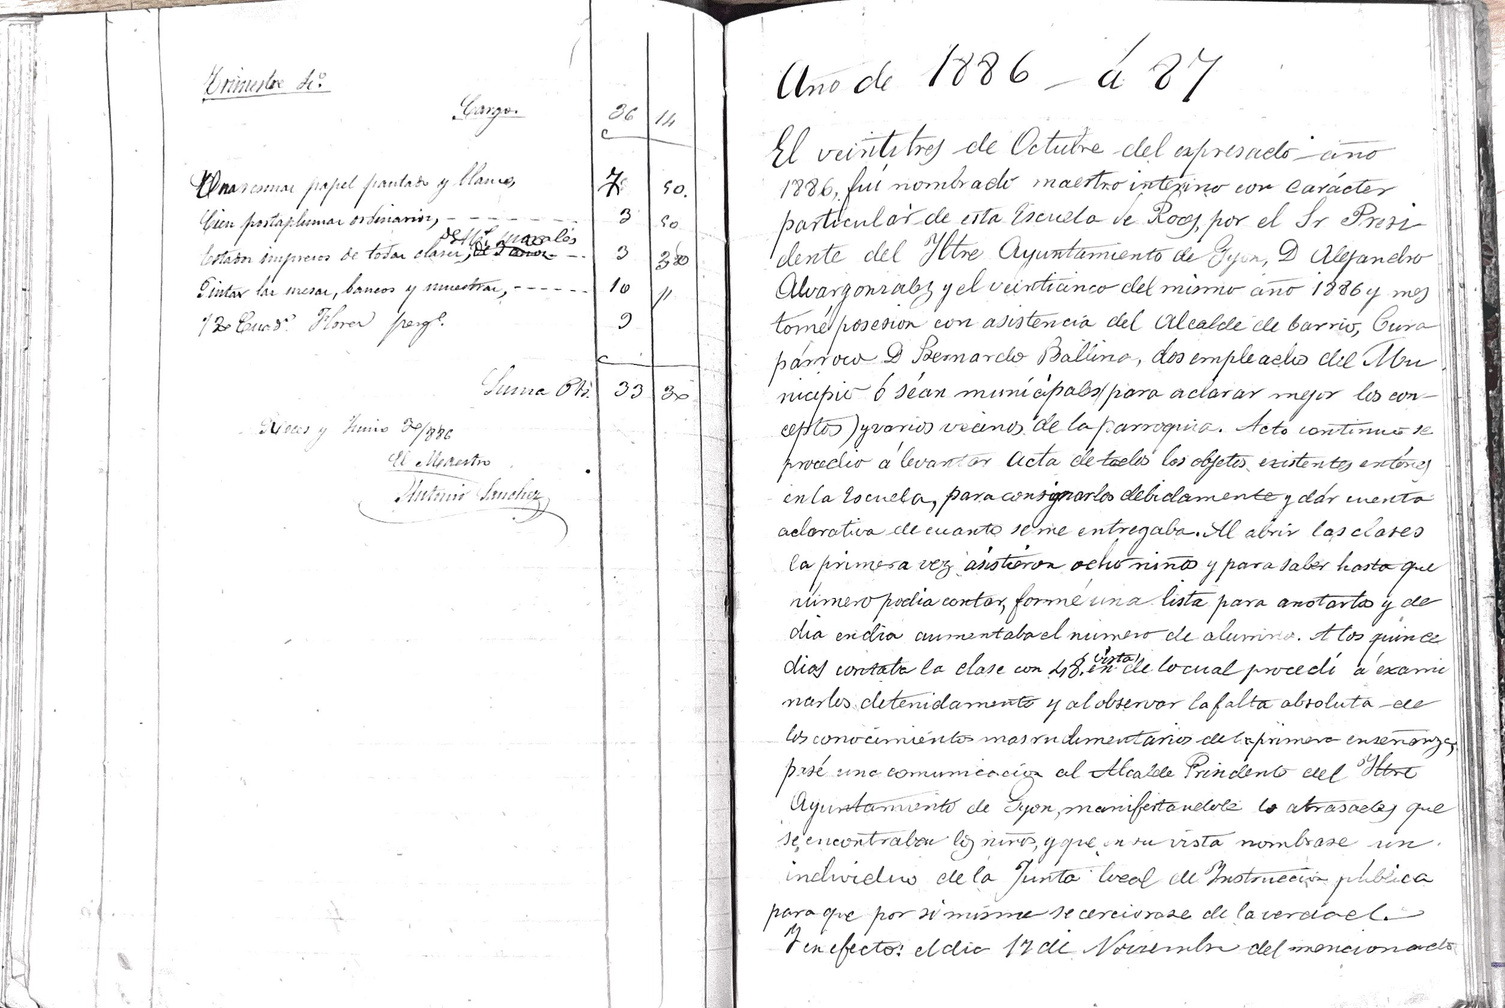 Trimestre 4º
Cargo. 36 14
Una resma papel pautado y llano, 7 50.
Cien portaplumas ordinarios, 3 50
Estados impresos de todas clases, 3 30
Pintar las mesas, bancos y muestras, 10 "
12 Cuadº Flórez 9
Suma Pts. 33 30
Roces y Junio 30/886
El Maestro
Antonio Sanchez
Año de 1886 - á 87
El veintitres de Octubre del expresado año
1886, fuí nombrado maestro interino con carácter
particular de esta Escuela de Roces, por el Sr Presi
dente del Yltre Ayuntamiento de Gyon, D Alejandro
Alvargonzalez y el veinticinco del mismo año 1886 y mes
tomé posesion con asistencia del Alcalde de barrio, Cura
párroco D Bernardo Ballina, dos empleados del Mu
nicipio ó séan municipales (para aclarar mejor los con-
ceptos) y varios vecinos de la parroquia. Acto continuo se
procedio á levantar Acta de todos los objetos existentes entónces
en la Escuela, para consignarlos debidamente y dár cuenta
aclarativa de cuanto se me entregaba. Al abrir las clases
la primera vez asistieron ocho niños y para saber hasta que
número podia contar, formé una lista para anotarlos y de
dia en dia aumentaba el número de alumnos. A los quince
dias contaba la clase con 48, en vista de lo cual procedí á exami
narlos detenidamente y al observar la falta absoluta de
los conocimientos mas rudimentarios de la primera enseñanza,
pasé una comunicacion al Alcalde Presidente del Yltre
Ayuntamiento de Gyon, manifestandole lo atrasados que
se encontraban los niños, y que en su vista nombrase un
individuo de la Junta local de Instrucción pública
para que por si mismo se cerciorase de la verdad.
Y en efecto: el dia 17 de Noviembre del mencionado